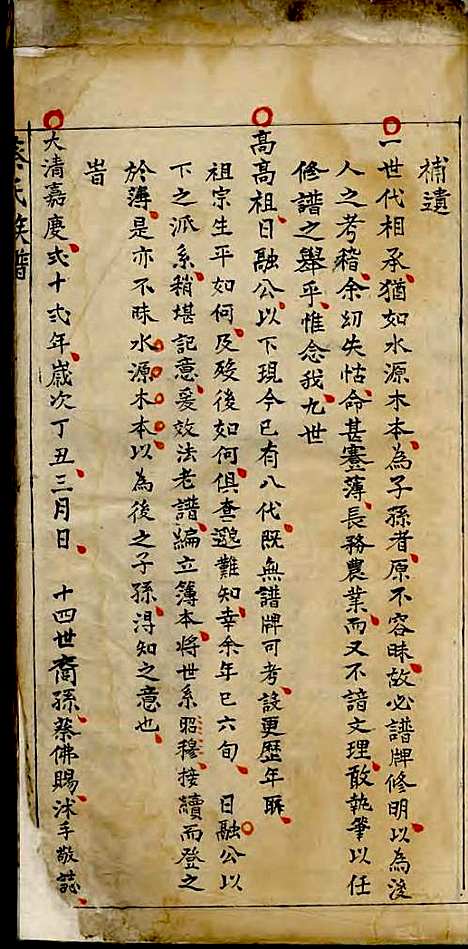 補遺
一世代相承猶如水源木本為子孫者原不容昧故必譜牌修明以為後
人之考稽余幼失怙命甚蹇薄長務農業而又不諳文理敢執筆以任
修譜之舉乎惟念我九世
高高祖日融公以下現今已有八代既無譜牌可考設更歷年
祖宗生平如何及歿後如何俱查邈難知幸余年已六旬 日融公以
下之派系稍堪記意爰效法老譜編立簿本將世系昭穆接續而登之
於簿是亦不昧水源木本以為後之子孫淂知之意也
旹
大清嘉慶弍十弍年歲次丁丑三月日 十四世裔孫蔡佛賜沐手敬誌
蔡氏族譜